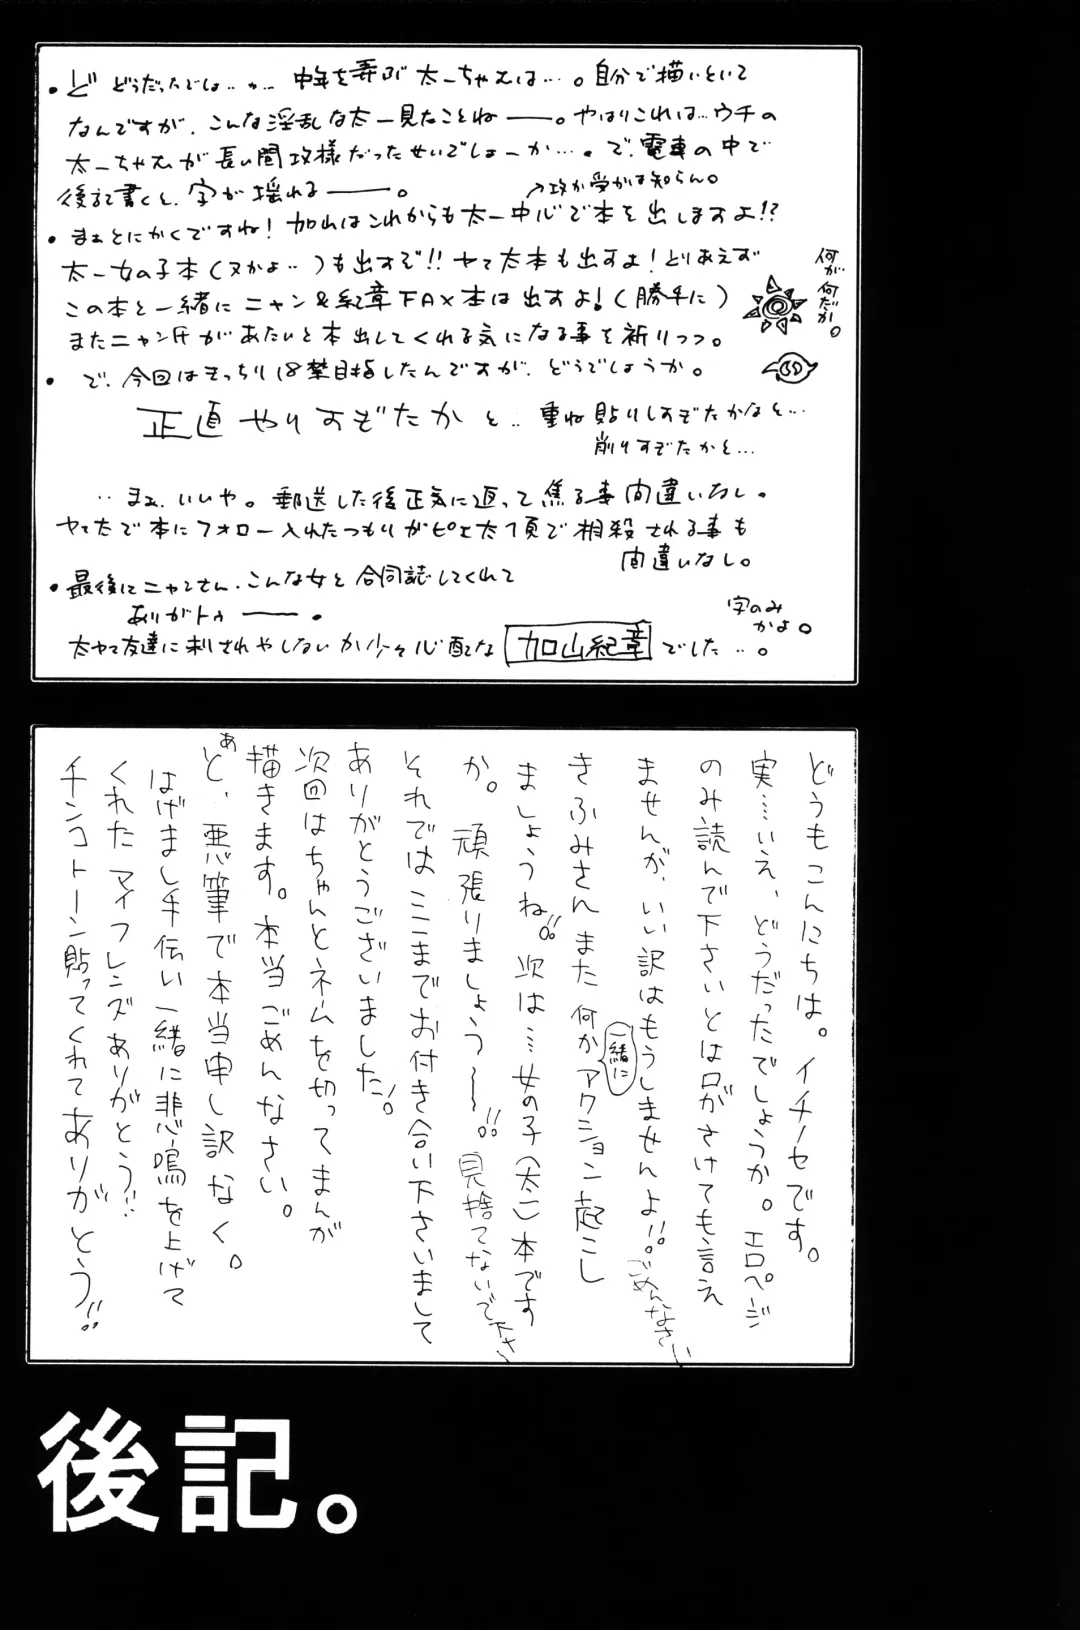 ・ど どうだったでしょ…か… 中年を弄ぶ 太一ちゃんは…。自分で描いといて
なんですが、こんな淫乱な太一見たことね――。やはりこれは…ウチの
太一ちゃんが長い間攻様だったせいでしょーか…。で、電車の中で
後記書くと、字が揺れる――。
→攻か受かは知らん。
・まぁとにかくですね! 加山はこれからも太一中心で本を出しますよ!?
太一女の子本(ヌかよ…)も出すぞ!!ヤマ太本も出すよ!とりあえず
この本と一緒にニャン&紀章FAX本は出すよ!(勝手に)
またニャン氏があたいと本出してくれる気になる事を祈りつつ。
何が何だか。
・で、今回はきっちり18禁目指したんですが、どうでしょうか。
正直やりすぎたかと‥重ね貼りしすぎたかなと…
削りすぎたかと…
‥まぁ、いいや。郵送した後正気に返って焦る事間違いなし。
ヤマ太で本にフォロー入れたつもりがピエ太1頁で相殺される事も
間違いなし。
・最後にニャンさん、こんな女と合同誌してくれて
ありがトゥ――。
字のみかよ。
太ヤマ友達に刺されやしないか少々心配な 加山紀章 でした‥。
どうもこんにちは。イチノセです。
実……いえ、どうだったでしょうか。エロページ
のみ読んで下さいとは口がさけても言え
ませんが、いい訳はもうしませんよ!!。ごめんなさい
きふみさんまた何か一緒にアクション起こし
ましょうね!!。次は…女の子(太一)本です
か。頑張りましょう〜〜!!。見捨てないで下さい
それではここまでお付き合い下さいまして
ありがとうございました!。
次回はちゃんとネームを切ってまんが
描きます。本当ごめんなさい。
あと、悪筆で本当申し訳なく。
はげまし手伝い一緒に悲鳴を上げて
くれたマイフレンズありがとう!!
チンコトーン貼ってくれてありがとう!!
後記。